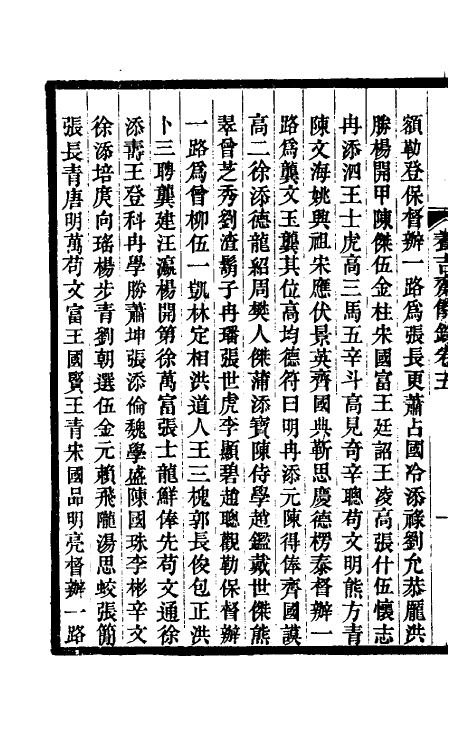 額勒登保督辦一路爲張長更蕭占國冷添祿劉允恭龎洪
勝楊開甲陳傑伍金柱宋國富王廷詔王凌高張什伍懷志
冉添泗王士虎高三馬五辛斗高見奇辛聰苟文明熊方青
陳文海姚興祖宋應伏景英齊國典靳思慶德楞泰督辦一
路爲龔文玉龔其位高均德符曰明冉添元陳得俸齊國謨
高二徐添德龍紹周樊人傑蒲添寶陳侍學趙鑑戴世傑熊
翠曾芝秀劉渣鬍子冉璠張世虎李顯碧趙聰觀勒保督辦
一路爲曾柳伍一凱林定相洪道人王三槐郭長俊包正洪
卜三聘龔建汪瀛楊開第徐萬富張士龍鮮俸先苟文通徐
添壽王登科冉學勝蕭坤張添倫魏學盛陳國珠李彬辛文
徐添培庹向瑤楊步青劉朝選伍金元賴飛隴湯思蛟張簡
張長青唐明萬苟文富王國賢王青宋國品明亮督辦一路
養吉齋餘錄卷五
一